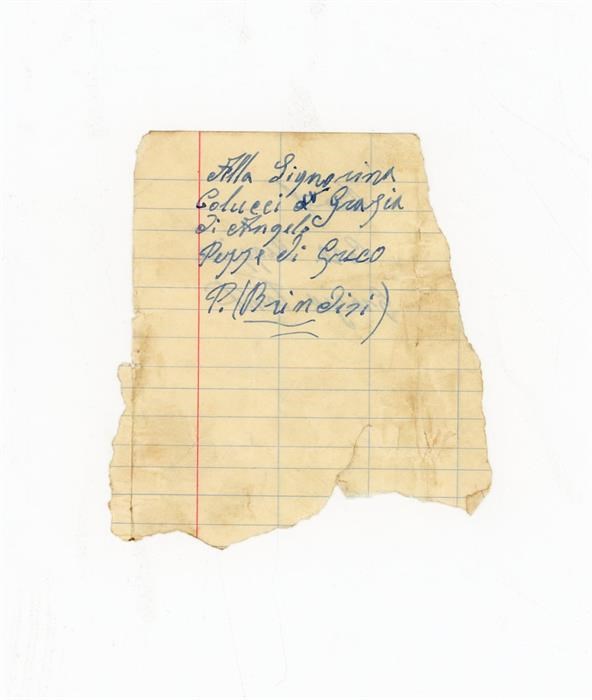 Alla Signorina
Colucci Grazia
di Angelo
di Greco
P. (Brindisi)